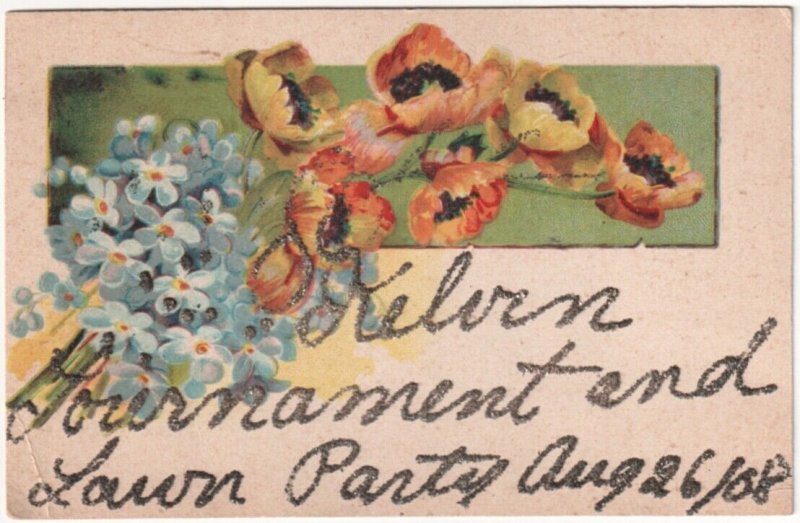 Kelvin
Tournament and
Lawn Party Aug 26/08